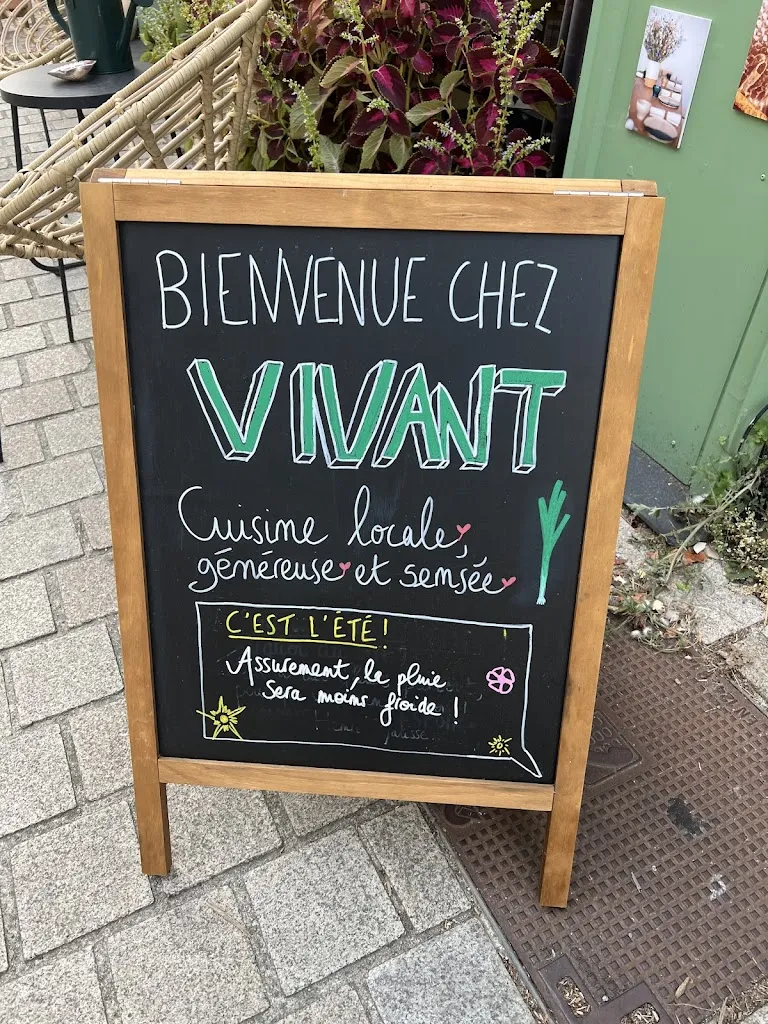 BIENVENUE CHEZ
VIVANT
Cuisine locale,
généreuse et sensée
C'EST L'ÉTÉ !
Assurement, la pluie
sera moins froide !